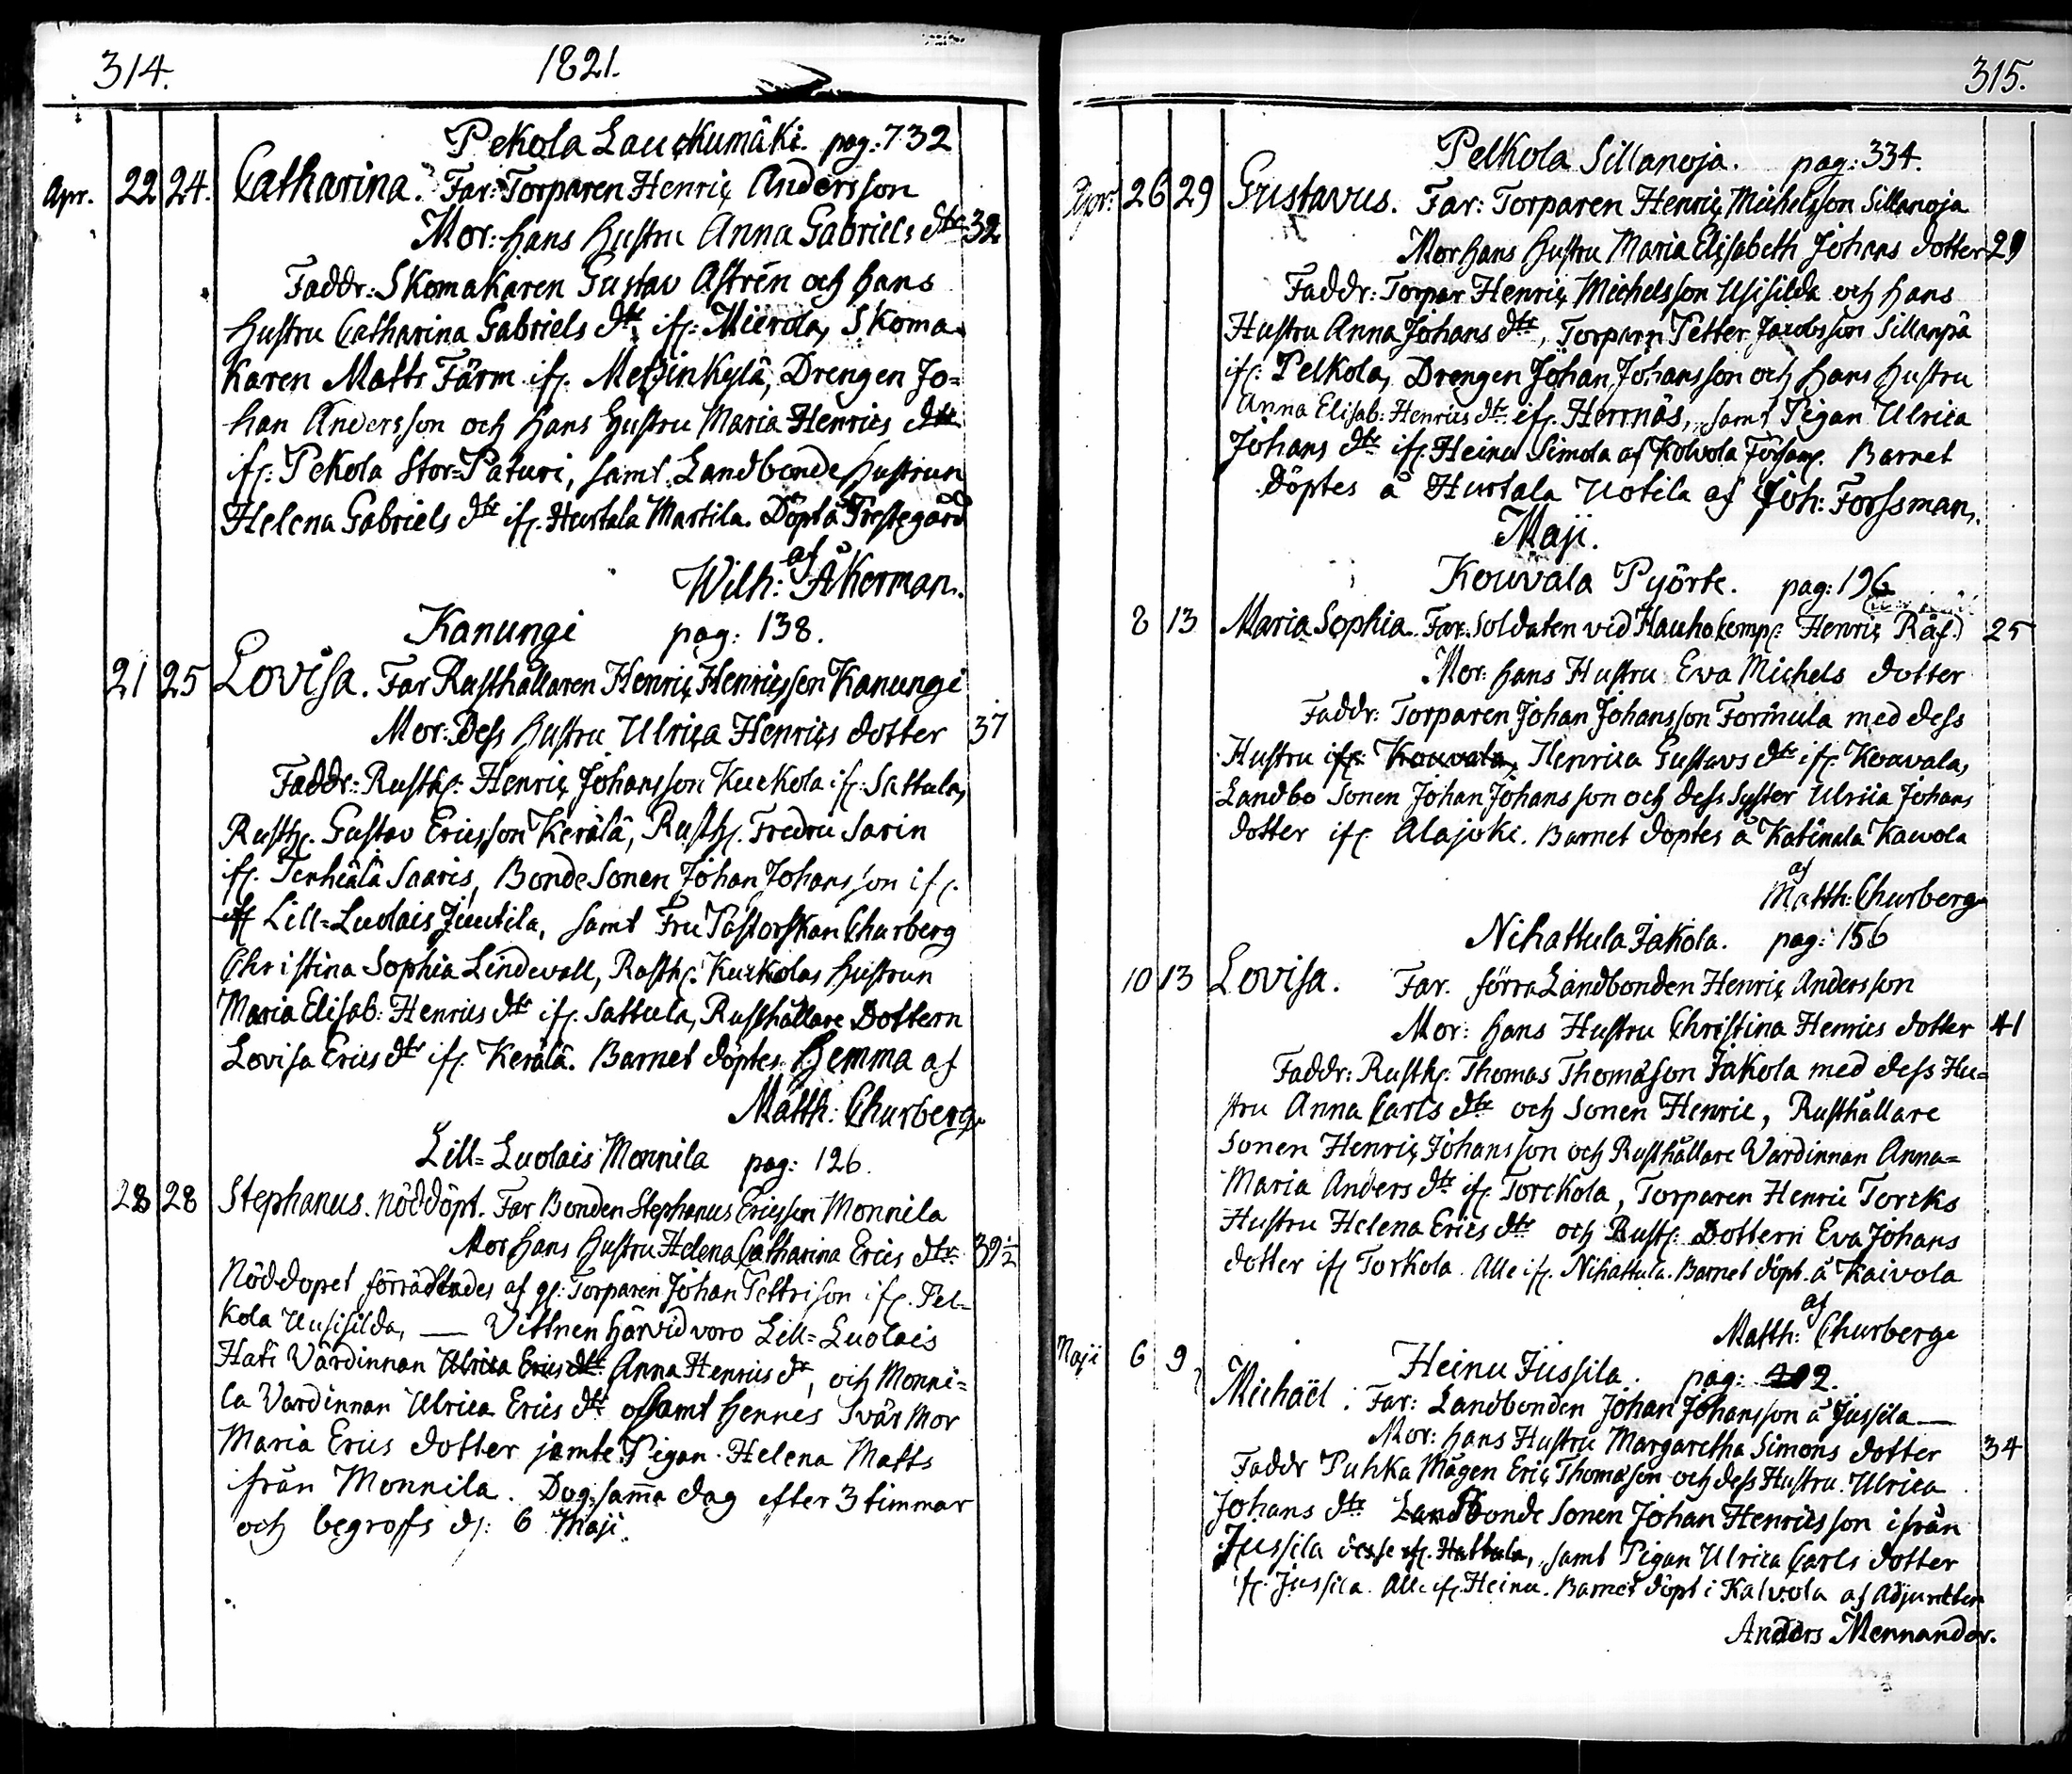 314.
1821.
Pekola Lauckumäki. pag: 732
Apr. 22 24. Catharina. Far: Torparen Henric Andersson
Mor: hans hustru Anna Gabriels dtr 32
Faddr: Skomakaren Gustav Astrén och hans
hustru Catharina Gabriels dtr if: Mierola, Skoma-
karen Matts Färm if: Metzinkylä, Drengen Jo=
han Andersson och hans hustru Maria Henrics dtr
if: Pekola Stor=Paturi, samt Landbonde hustrun
Helena Gabriels dtr if: Hurtala Martila. Döpt å Prestegård
af
Wilh: Åkerman.
Kanungi pag: 138.
21 25 Lovisa. Far Rusthållaren Henric Henricsson Kanungi
Mor: Dess hustru Ulrica Henrics dotter 37
Faddr: Rusth: Henric Johansson Kuckola if: Sattula,
Rusth: Gustav Ericsson Kerälä, Rusth: Fredric Sarin
if: Tenhiälä Saaris, Bonde Sonen Johan Johansson if:
Lill=Luolais Juutila, samt Fru Pastorskan Churberg
Christina Sophia Lindevall, Rusth: Kuckolas hustrun
Maria Elisab: Henrics dtr if: Sattula, Rusthållare Dottern
Lovisa Erics dtr if: Kerälä. Barnet döptes hemma af
Matth: Churberg
Lill=Luolais Monnila pag: 126.
28 28 Stephanus. nöddöpt. Far Bonden Stephanus Ericsson Monnila
Mor hans hustru Helena Catharina Erics dtr 39½
Nöddopet förrättades af gl: Torparen Johan Pettrison if: Pel=
kola Uusisilda, — Vittnen härvid voro Lill=Luolais
Hati Värdinnan Ulrica Erics dtr Anna Henrics dr, och Monni=
la Värdinnan Ulrica Erics dtr samt hennes Svär Mor
Maria Erics dotter jämte Pigan Helena Matts
från Monnila. Dog samma dag efter 3 timmar
och begrofs d: 6 Maji.
315.
Pelkola Sillanoja. pag: 334.
Apr: 26 29 Gustavus. Far: Torparen Henric Michelsson Sillanoja
Mor hans hustru Maria Elisabeth Johans dotter 29
Faddr: Torpar Henric Michelsson Usisilda och hans
Hustru Anna Johans dtr, Torparn Petter Jacobsson Sillanpä
if: Pelkola, Drengen Johan Johansson och hans hustru
Anna Elisab: Henrics dtr if: Herrnäs, samt Pigan Ulrica
Johans dtr if: Heinu Simola af Kolvola Församl. Barnet
döptes å Hurtala Uotila af Joh: Forssman.
Maji.
Kouvala Pyörte. pag: 196
8 13 Maria Sophia. Far: Soldaten vid Hauho Comp: Henric Räf) 25
Mor: hans Hustru Eva Michels dotter
Faddr: Torparen Johan Johansson Formula med dess
Hustru if: Kouvala, Henrica Gustavs dtr if: Kouvala,
Landbo Sonen Johan Johansson och dess Syster Ulrica Johans
dotter if: Alajoki. Barnet döptes å Katinala Kaivola
af
Matth: Churberg
Nihattula Jakola. pag: 156
10 13 Lovisa. Far. förra Landbonden Henric Andersson
Mor: hans Hustru Christina Henrics dotter 41
Faddr: Rusth: Thomas Thomason Jakola med dess Hu=
stru Anna Carls dtr och Sonen Henric, Rusthållare
Sonen Henric Johansson och Rusthållare Värdinnan Anna=
Maria Anders dtr if: Torckola, Torparen Henric Torcks
Hustru Helena Erics dtr och Rusth: Dottern Eva Johans
dotter if: Torkola. Alle if: Nihattula. Barnet döpt. å Kaivola
af
Matth: Churberg
Heinu Jussila. pag: 2.
Maji 6 9 Michaël. Far: Landbonden Johan Johansson å Jussila —
Mor: hans Hustru Margaretha Simons dotter 34
Faddr Puhka Mågen Eric Thomason och dess Hustru Ulrica
Johans dtr Landbonde Sonen Johan Henricsson ifrån
Jussila desse if: Hattula, samt Pigan Ulrica Carls dotter
if: Jussila. Alle if: Heinu. Barnet döpt i Kalvola af Adjuncten
Anders Mennander.